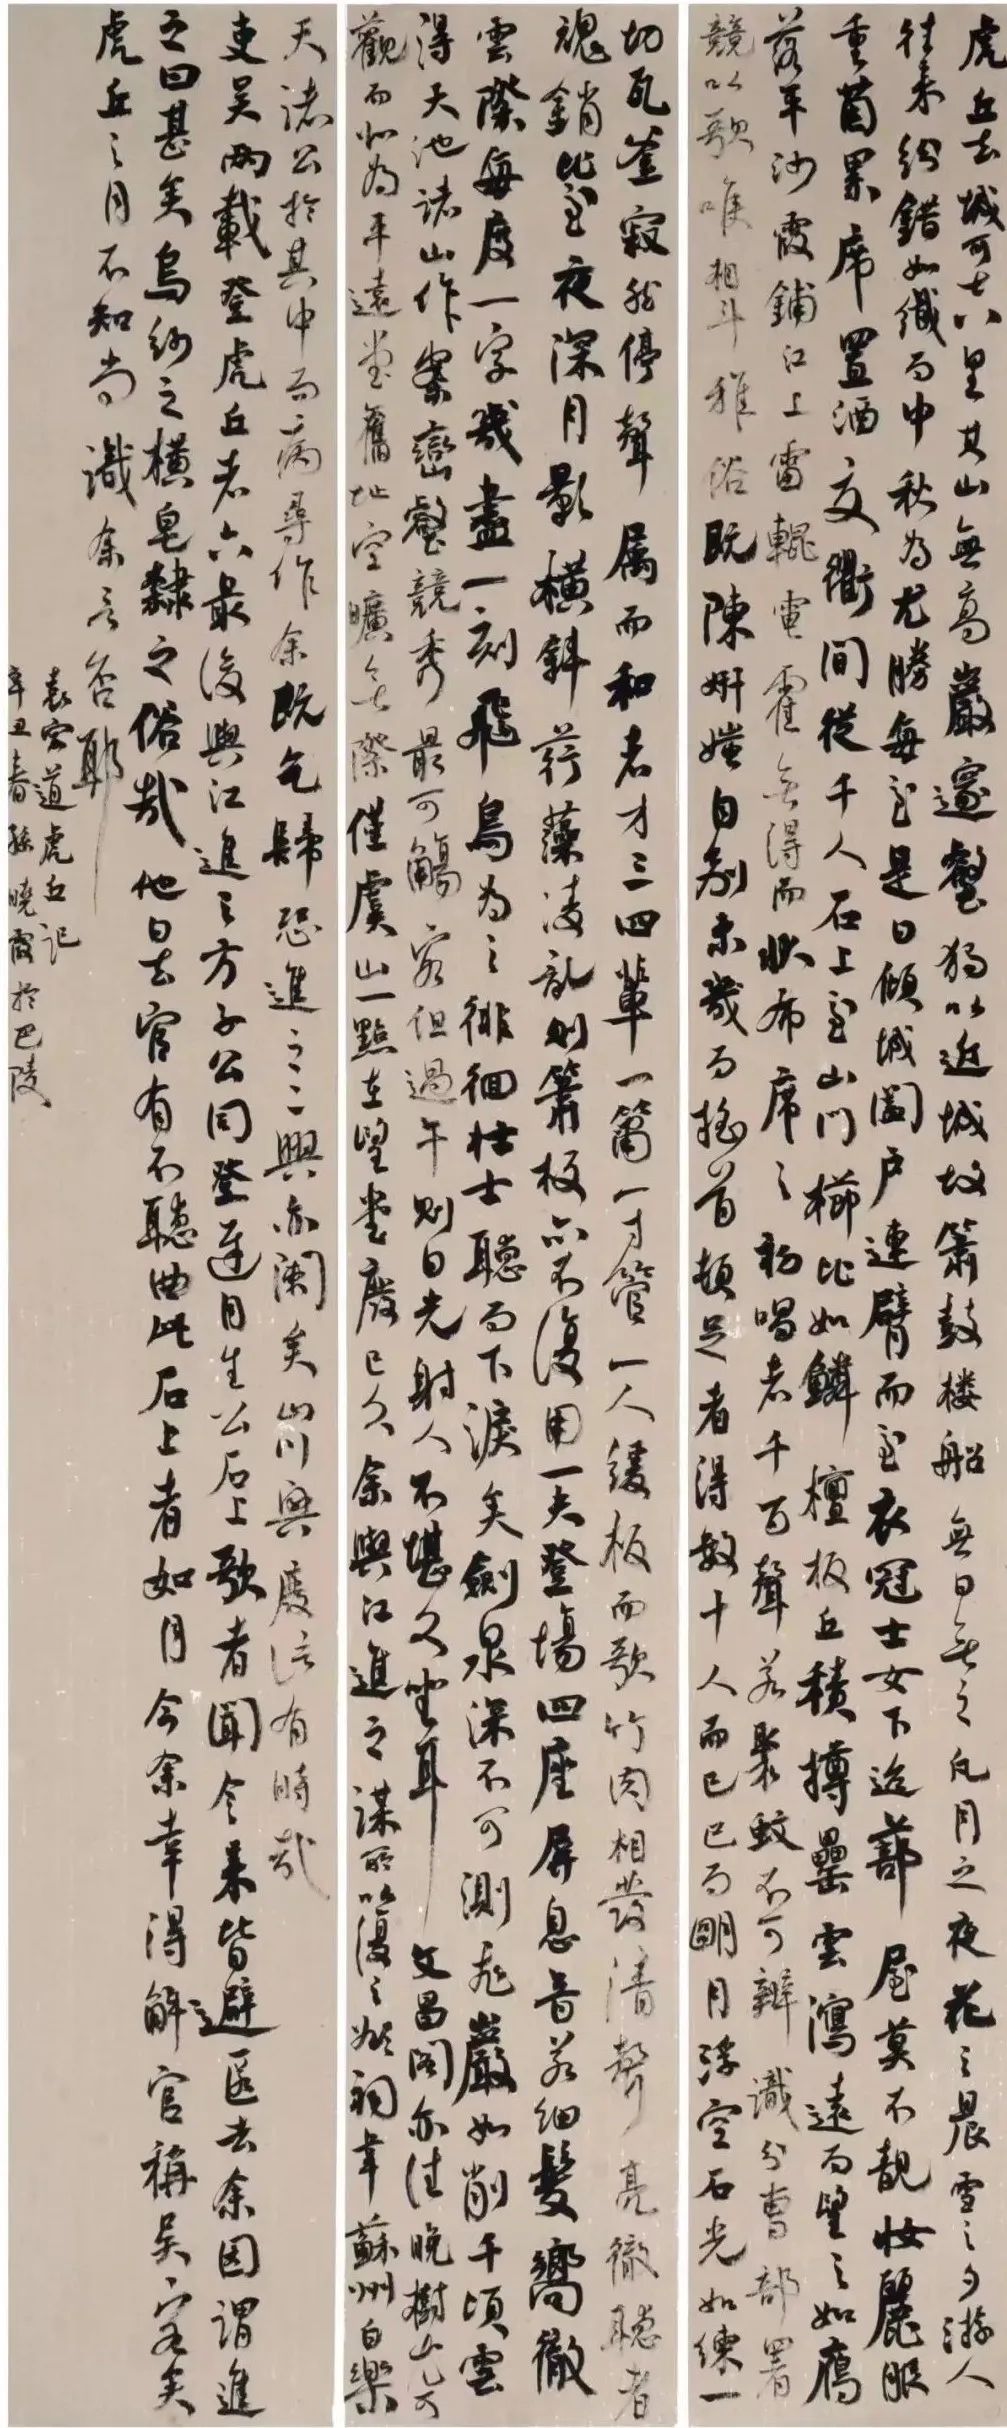 虎丘去城可七八里其山無高巖邃壑獨以近城故簫鼓楼船無日無之凡月之夜花之晨雪之夕游人
往来紛錯如織而中秋為尤勝每至是日傾城闔戶連臂而至衣冠士女下迨蔀屋莫不靚妝麗服
重茵累席置酒交衢間從千人石上至山門櫛比如鱗檀板丘積樽罍雲瀉遠而望之如雁
落平沙霞鋪江上雷輥電霍無得而狀布席之初唱者千百聲若聚蚊不可辨識分曹部署
競以歌喉相斗雅俗既陳妍媸自別未幾而搖首頓足者得數十人而已已而明月浮空石光如練一
切瓦釜寂然停聲屬而和者才三四輩一簫一寸管一人緩板而歌竹肉相發清聲亮徹聽者
魂銷比至夜深月影橫斜荇藻凌亂則簫板亦不復用一夫登場四座屏息音若細髮響徹
雲際每度一字幾盡一刻飛鳥為之徘徊壯士聽而下淚矣劍泉深不可測飛巖如削千頃雲
得天池諸山作案巒壑競秀最可觴客但過午則日光射人不堪久坐耳文昌閣亦佳晚樹尤可
觀而北為平遠堂舊址空曠無際僅虞山一點在望堂廢已久余與江進之謀所以復之欲祠韋蘇州白樂
天諸公於其中而病尋作余既乞歸恐進之之興亦闌矣山川興廢信有時哉
吏吳兩載登虎丘者六最後與江進之方子公同登遲月生公石上歌者聞令来皆避匿去余因謂進
之曰甚矣烏紗之橫皂隸之俗哉他日去官有不聽曲此石上者如月今余幸得解官稱吳客矣
虎丘之月不知尚識余言否耶
袁宏道虎丘記
辛丑春孫曉霞於巴陵